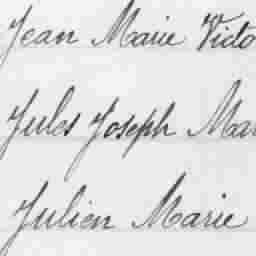 Jean Marie Victo
Jules Joseph Mar
Julien Marie